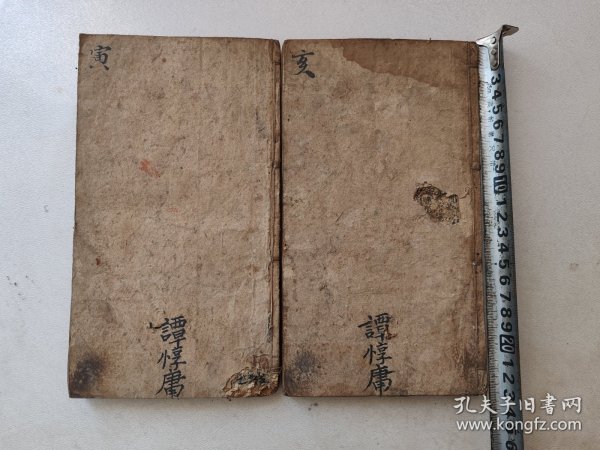 寅
譚惇庸
亥
譚惇庸
3
4
5
6
7
8
9
10
1
2
3
4
5
6
7
8
9
20
1
2
3
4
5
6
孔夫子旧书网
www.kongfz.com